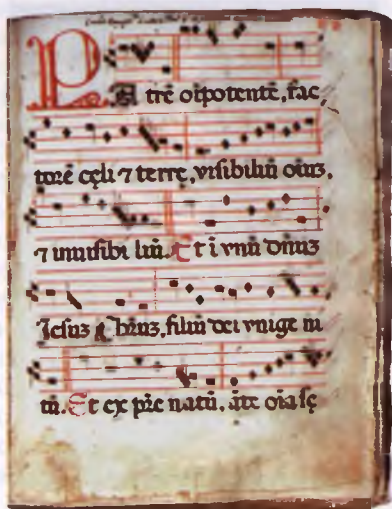 PA trē oīpotentē, fac
torē cęli ⁊ terre, visibiliū oīuz,
⁊ inuisibi liū. Et i vnū dnūz
Jesuz xpuz, filiū dei vnige ni
tū. Et ex pr̄e natū. āte oīa sę